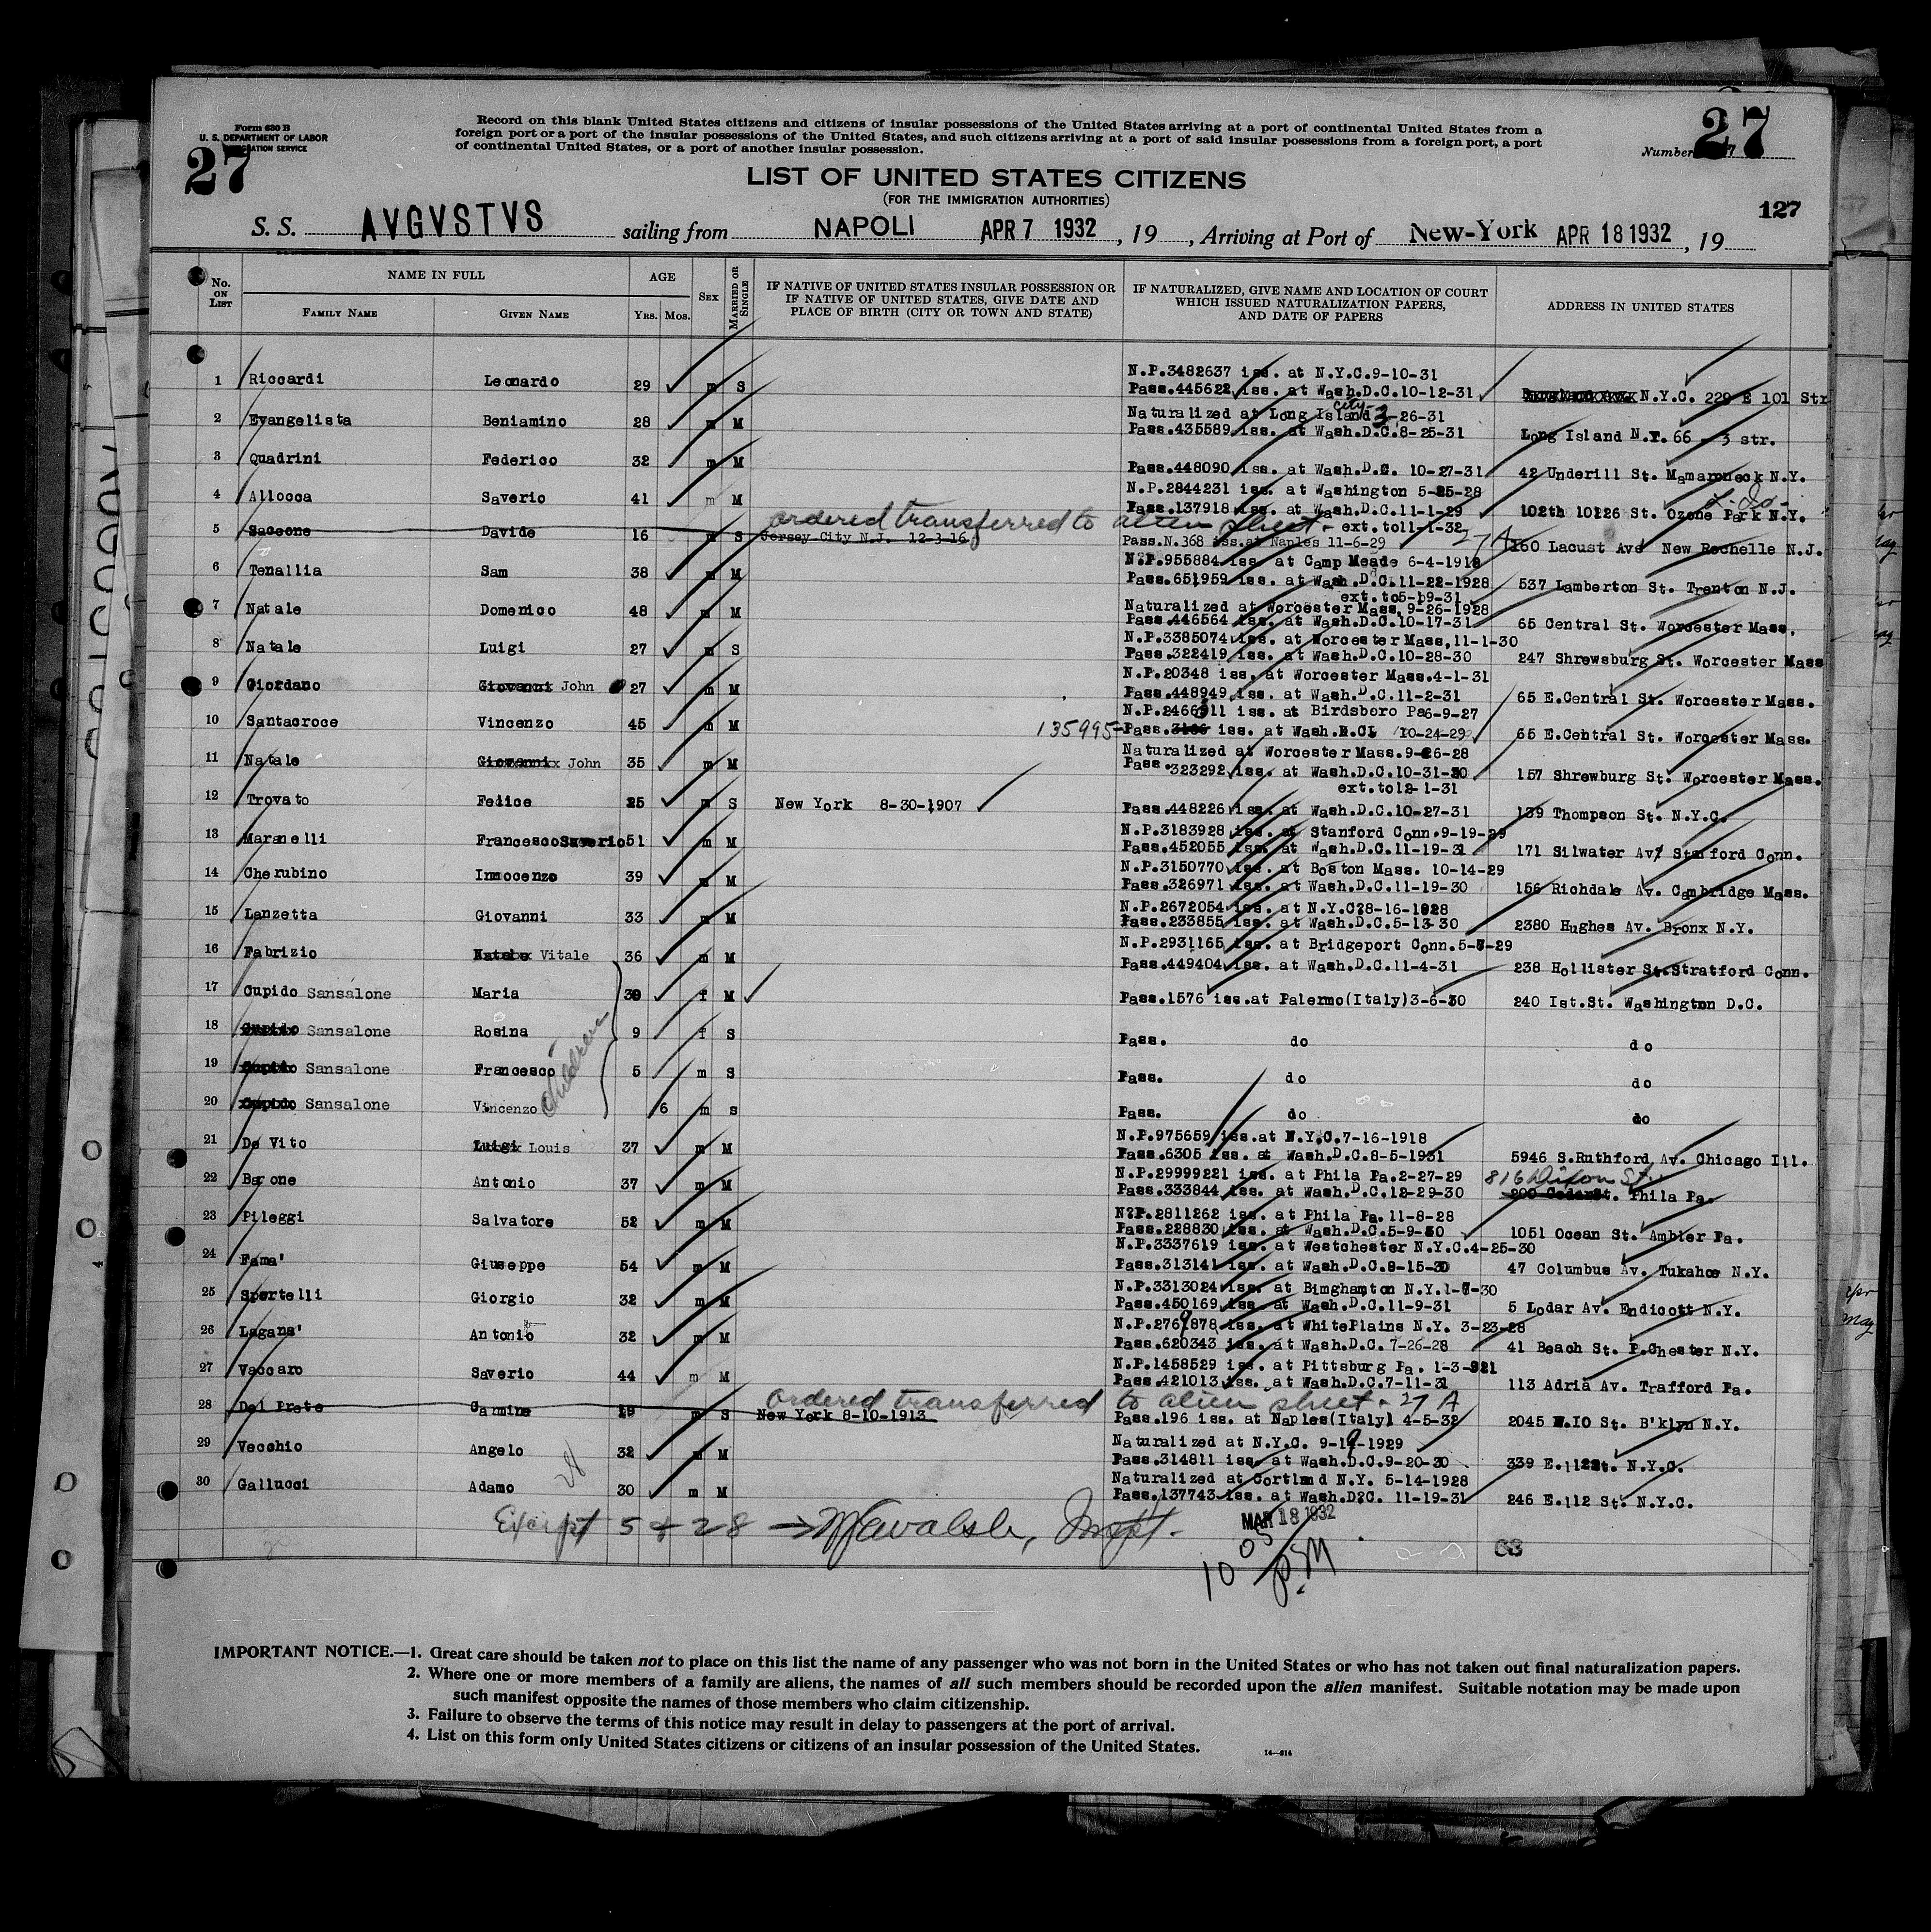 Form 630 B
U. S. DEPARTMENT OF LABOR
IMMIGRATION SERVICE
27
Record on this blank United States citizens and citizens of insular possessions of the United States arriving at a port of continental United States from a
foreign port or a port of the insular possessions of the United States, and such citizens arriving at a port of said insular possessions from a foreign port, a port
of continental United States, or a port of another insular possession.
Number 27
LIST OF UNITED STATES CITIZENS
(FOR THE IMMIGRATION AUTHORITIES)
127
S. S. AVGVSTVS sailing from NAPOLI APR 7 1932, 19 , Arriving at Port of New-York APR 18 1932, 19
No. ON LIST NAME IN FULL FAMILY NAME GIVEN NAME AGE YRS. MOS. SEX MARRIED OR SINGLE IF NATIVE OF UNITED STATES INSULAR POSSESSION OR IF NATIVE OF UNITED STATES, GIVE DATE AND PLACE OF BIRTH (CITY OR TOWN AND STATE) IF NATURALIZED, GIVE NAME AND LOCATION OF COURT WHICH ISSUED NATURALIZATION PAPERS, AND DATE OF PAPERS ADDRESS IN UNITED STATES
N.P.3482637 iss. at N.Y.C.9-10-31
1 Riccardi Leonardo 29 m S Pass.445622 iss. at Wash.D.C.10-12-31 N.Y.C. 229 E 101 Str
Naturalized at Long Island City 3-26-31
2 Evangelista Beniamino 28 m M Pass.435589 iss. at Wash.D.C.8-25-31 Long Island N.Y. 66 - 3 str.
3 Quadrini Federico 32 m M Pass.448090 iss. at Wash.D.C. 10-27-31 42 Underill St. Mamaroneck N.Y.
N.P.2844231 iss. at Washington 5-25-28
4 Allocca Saverio 41 m M Pass.137918 iss. at Wash.D.C.11-1-29 102th 10126 St. Ozone Park N.Y.
ordered transferred to alien sheet - ext.to11-1-32 27A
5 Saccone Davide 16 m S Jersey City N.J. 12-3-16 Pass.N.368 iss.at Naples 11-6-29 160 Lacust Ave New Rochelle N.J.
N.P.955884 iss. at Camp Meade 6-4-1918
6 Tenallia Sam 38 m M Pass.651959 iss. at Wash.D.C.11-22-1928 537 Lamberton St. Trenton N.J.
ext.to5-19-31
Naturalized at Worcester Mass. 9-26-1928
7 Natale Domenico 48 m M Pass.446564 iss. at Wash.D.C.10-17-31 65 Central St. Worcester Mass.
N.P.3385074 iss. at Worcester Mass.11-1-30
8 Natale Luigi 27 m S Pass.322419 iss. at Wash.D.C.10-28-30 247 Shrewsburg St. Worcester Mass
N.P.20348 iss. at Worcester Mass.4-1-31
9 Giordano Giovanni John 27 m M Pass.448949 iss. at Wash.D.C.11-2-31 65 E.Central St. Worcester Mass.
N.P.2466311 iss. at Birdsboro Pa6-9-27
10 Santacroce Vincenzo 45 m M 135995- Pass. iss. at Wash.D.C. 10-24-29 65 E.Central St. Worcester Mass.
Naturalized at Worcester Mass.9-26-28
11 Natale Giovanni John 35 m M Pass.323292 iss. at Wash.D.C.10-31-30 157 Shrewburg St. Worcester Mass.
ext.to12-1-31
12 Trovato Felice 25 m S New York 8-30-1907 Pass.448226 iss. at Wash.D.C.10-27-31 139 Thompson St. N.Y.C.
N.P.3183928 iss. at Stanford Conn.9-19-29
13 Maranelli Francesco Saverio 51 m M Pass.452055 iss. at Wash.D.C.11-19-31 171 Silwater Av. Stamford Conn.
N.P.3150770 iss. at Boston Mass. 10-14-29
14 Cherubino Innocenzo 39 m M Pass.326971 iss. at Wash.D.C.11-19-30 156 Richdale Av. Cambridge Mass.
N.P.2672054 iss. at N.Y.C?8-16-1928
15 Lanzetta Giovanni 33 m M Pass.233855 iss. at Wash.D.C.5-13-30 2380 Hughes Av. Bronx N.Y.
N.P.2931165 iss. at Bridgeport Conn.
16 Fabrizio Vitale 36 m M Pass.449404 iss. at Wash.D.C.11-4-31 238 Hollister St.Stratford Conn.
17 Cupido Sansalone Maria 30 f M Pass.1576 iss.at Palermo(Italy)3-6-30 240 Ist.St. Washington D.C.
children
18 Cupido Sansalone Rosina 9 f S Pass. do do
19 Cupido Sansalone Francesco 5 m S Pass. do do
20 Cupido Sansalone Vincenzo 6 m s Pass. do do
N.P.975659 iss.at N.Y.C.7-16-1918
21 De Vito Luigi Louis 37 m M Pass.6305 iss. at Wash.D.C.8-5-1931 5946 S.Ruthford Av. Chicago Ill.
N.P.29999221 iss. at Phila Pa.2-27-29 816 Dixon St.
22 Barone Antonio 37 m M Pass.333844 iss. at Wash.D.C.12-29-30 200 Cedar St. Phila Pa.
N?P.2811262 iss. at Phila Pa. 11-8-28
23 Pileggi Salvatore 52 m M Pass.228830 iss. at Wash.D.C.5-9-30 1051 Ocean St. Ambler Pa.
N.P.3337619 iss. at Westchester N.Y.C.4-25-30
24 Fama' Giuseppe 54 m M Pass.313141 iss. at Wash.D.C.8-15-30 47 Columbus Av. Tukahoe N.Y.
N.P.3313024 iss. at Bimghamton N.Y.
25 Sportelli Giorgio 32 m M Pass.450169 iss. at Wash.D.C.11-9-31 5 Lodar Av. Endicott N.Y.
N.P.2769878 iss. at WhitePlains N.Y. 3-23-28
26 Lagana' Antonio 32 m M Pass.620343 iss. at Wash.D.C. 7-26-28 41 Beach St. P.Chester N.Y.
N.P.1458529 iss. at Pittsburg Pa. 1-3-921
27 Vaccaro Saverio 44 m M Pass.421013 iss. at Wash.D.C.7-11-31 113 Adria Av. Trafford Pa.
Ordered transferred to alien sheet - 27 A
28 Del Prete Carmine 19 m S New York 8-10-1913 Pass.196 iss. at Naples(Italy) 4-5-32 2045 W.10 St. B'klyn N.Y.
Naturalized at N.Y.C. 9-19-1929
29 Vecchio Angelo 32 m M Pass.314811 iss. at Wash.D.C.9-20-30 339 E.112St. N.Y.C.
Naturalized at Cortland N.Y. 5-14-1928
30 Gallucci Adamo 30 m M Pass.137743 iss. at Wash.D?C. 11-19-31 246 E.112 St. N.Y.C.
Except 5 & 28 → Walsh, Inspt. MAR 18 1932
10 05 P.M
IMPORTANT NOTICE.—1. Great care should be taken not to place on this list the name of any passenger who was not born in the United States or who has not taken out final naturalization papers.
2. Where one or more members of a family are aliens, the names of all such members should be recorded upon the alien manifest. Suitable notation may be made upon
such manifest opposite the names of those members who claim citizenship.
3. Failure to observe the terms of this notice may result in delay to passengers at the port of arrival.
4. List on this form only United States citizens or citizens of an insular possession of the United States.
14—814